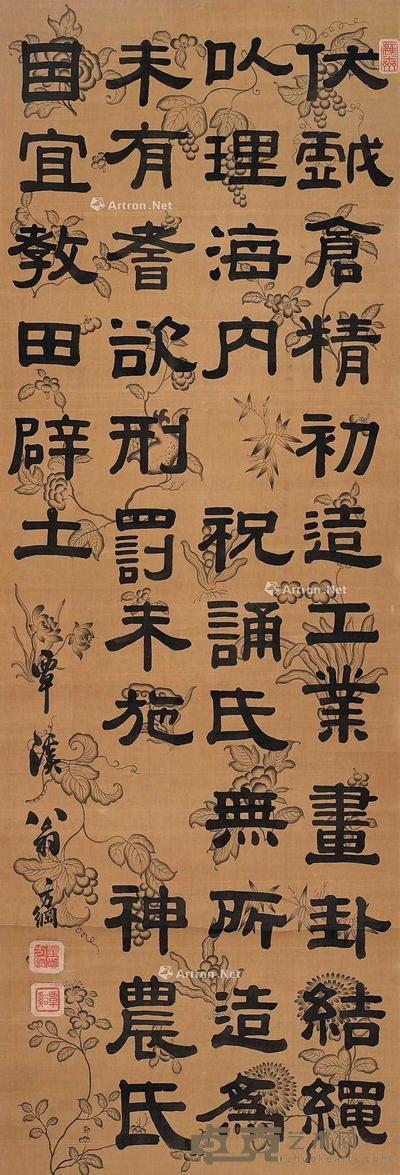 伏戲倉精初造工業畫卦結繩
以理海内 祝誦氏無所造為
未有耆欲刑罰未施 神農氏
因宜教田辟土
覃溪翁方綱
Artron.Net
Artron.Net
Artron.Net
Artron.Net
卓克艺术网